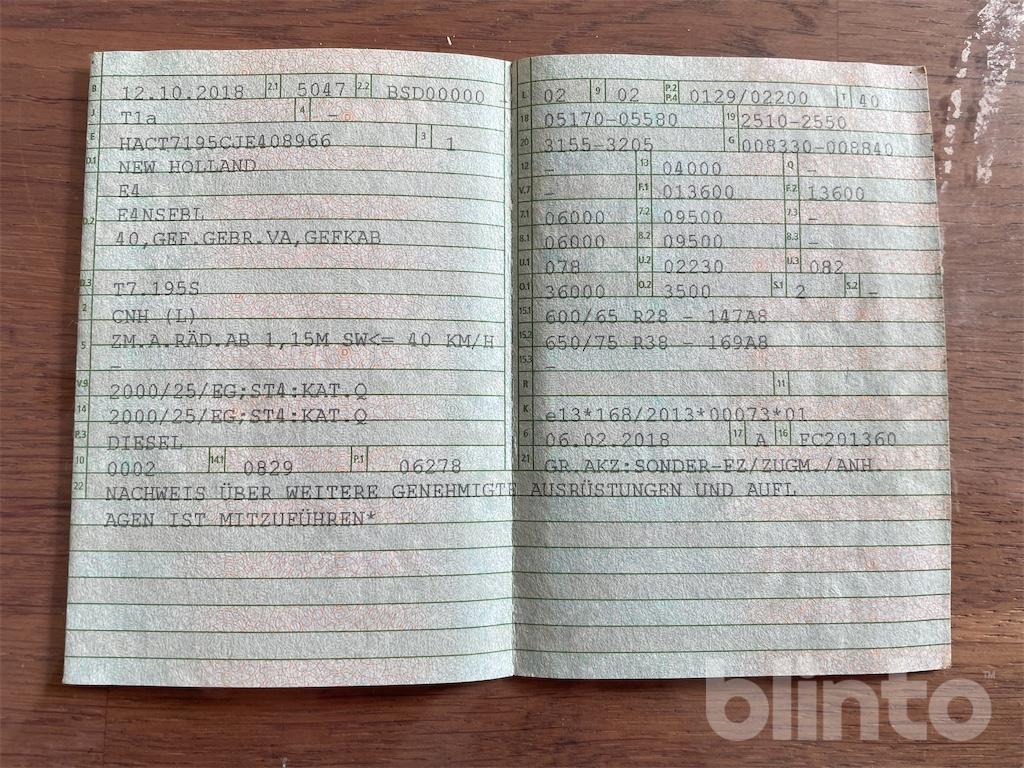 B 12.10.2018 2.1 5047 2.2 BSD00000
J T1a 4 -
E HACT7195CJE408966 3 1
D.1 NEW HOLLAND
E4
D.2 E4NSFBL
40,GEF.GEBR.VA,GEFKAB
D.3 T7.195S
2 CNH (L)
5 ZM.A.RÄD.AB 1,15M SW<= 40 KM/H
-
V.9 2000/25/EG;ST4:KAT.Q
14 2000/25/EG;ST4:KAT.Q
P.3 DIESEL
10 0002 14.1 0829 P.1 06278
L 02 9 02 P.2 P.4 0129/02200 T 40
18 05170-05580 19 2510-2550
20 3155-3205 G 008330-008840
12 - 13 04000 Q -
V.7 - F.1 013600 F.2 13600
7.1 06000 7.2 09500 7.3 -
8.1 06000 8.2 09500 8.3 -
U.1 078 U.2 02230 U.3 082
O.1 36000 O.2 3500 S.1 2 S.2 -
15.1 600/65 R28 - 147A8
15.2 650/75 R38 - 169A8
15.3 -
R 11
K e13*168/2013*00073*01
6 06.02.2018 17 A 16 FC201360
21 GR.AKZ:SONDER-FZ/ZUGM./ANH.
22 NACHWEIS ÜBER WEITERE GENEHMIGTE AUSRÜSTUNGEN UND AUFL
AGEN IST MITZUFÜHREN*
blinto™